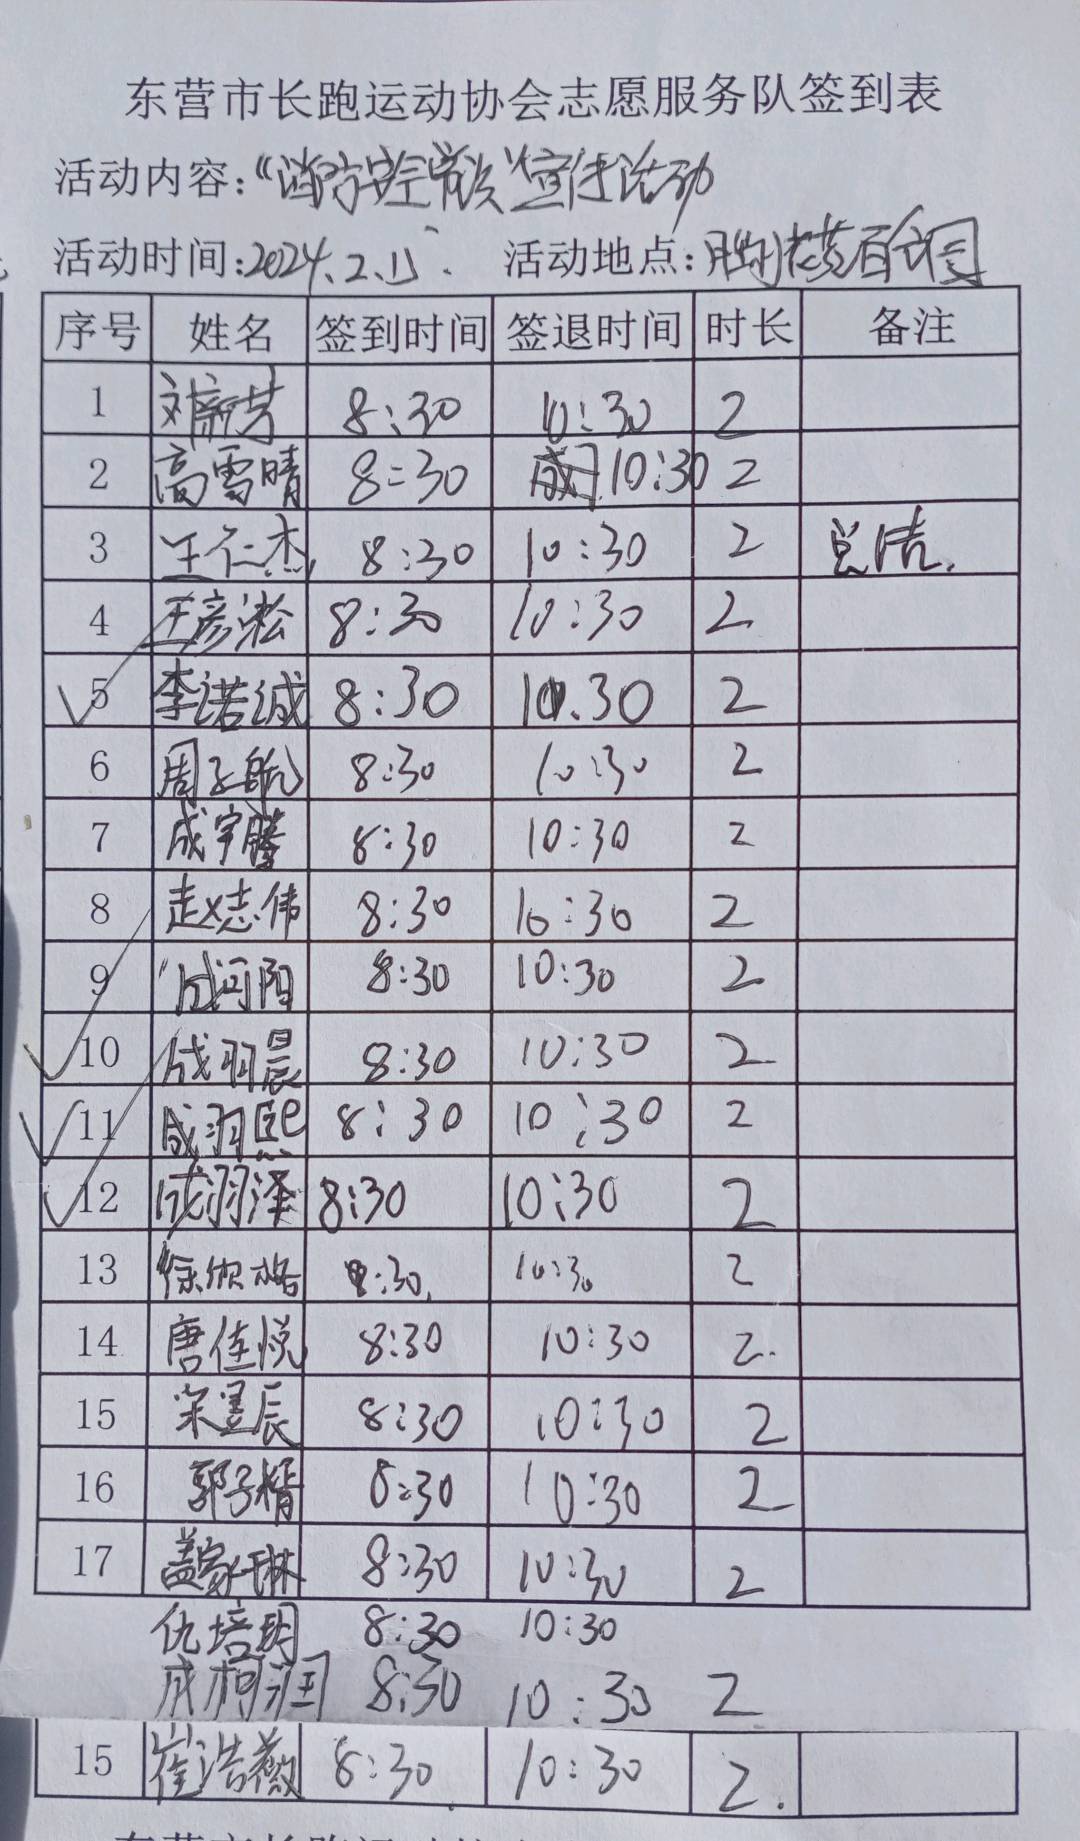 东营市长跑运动协会志愿服务队签到表
活动内容:“消防安全常识”宣传活动
活动时间:2024.2. 活动地点:胜利花苑百
序号 姓名 签到时间 签退时间 时长 备注
1 刘新芳 8:30 10:30 2
2 高雪晴 8:30 10:30 2
3 王仁杰 8:30 10:30 2 总结.
4 王彦淞 8:30 10:30 2
5 李诺诚 8:30 10.30 2
6 周子航 8:30 10:30 2
7 成宇腾 8:30 10:30 2
8 赵志伟 8:30 10:30 2
9 成河阳 8:30 10:30 2
10 成羽晨 8:30 10:30 2
11 成羽熙 8:30 10:30 2
12 成羽泽 8:30 10:30 2
13 徐 8:30 10:30 2
14 唐佳悦 8:30 10:30 2.
15 宋昱辰 8:30 10:30 2
16 郭子楈 8:30 10:30 2
17 盖家琳 8:30 10:30 2
仇培玥 8:30 10:30
成柯润 8:30 10:30 2
15 崔浩薇 8:30 10:30 2.